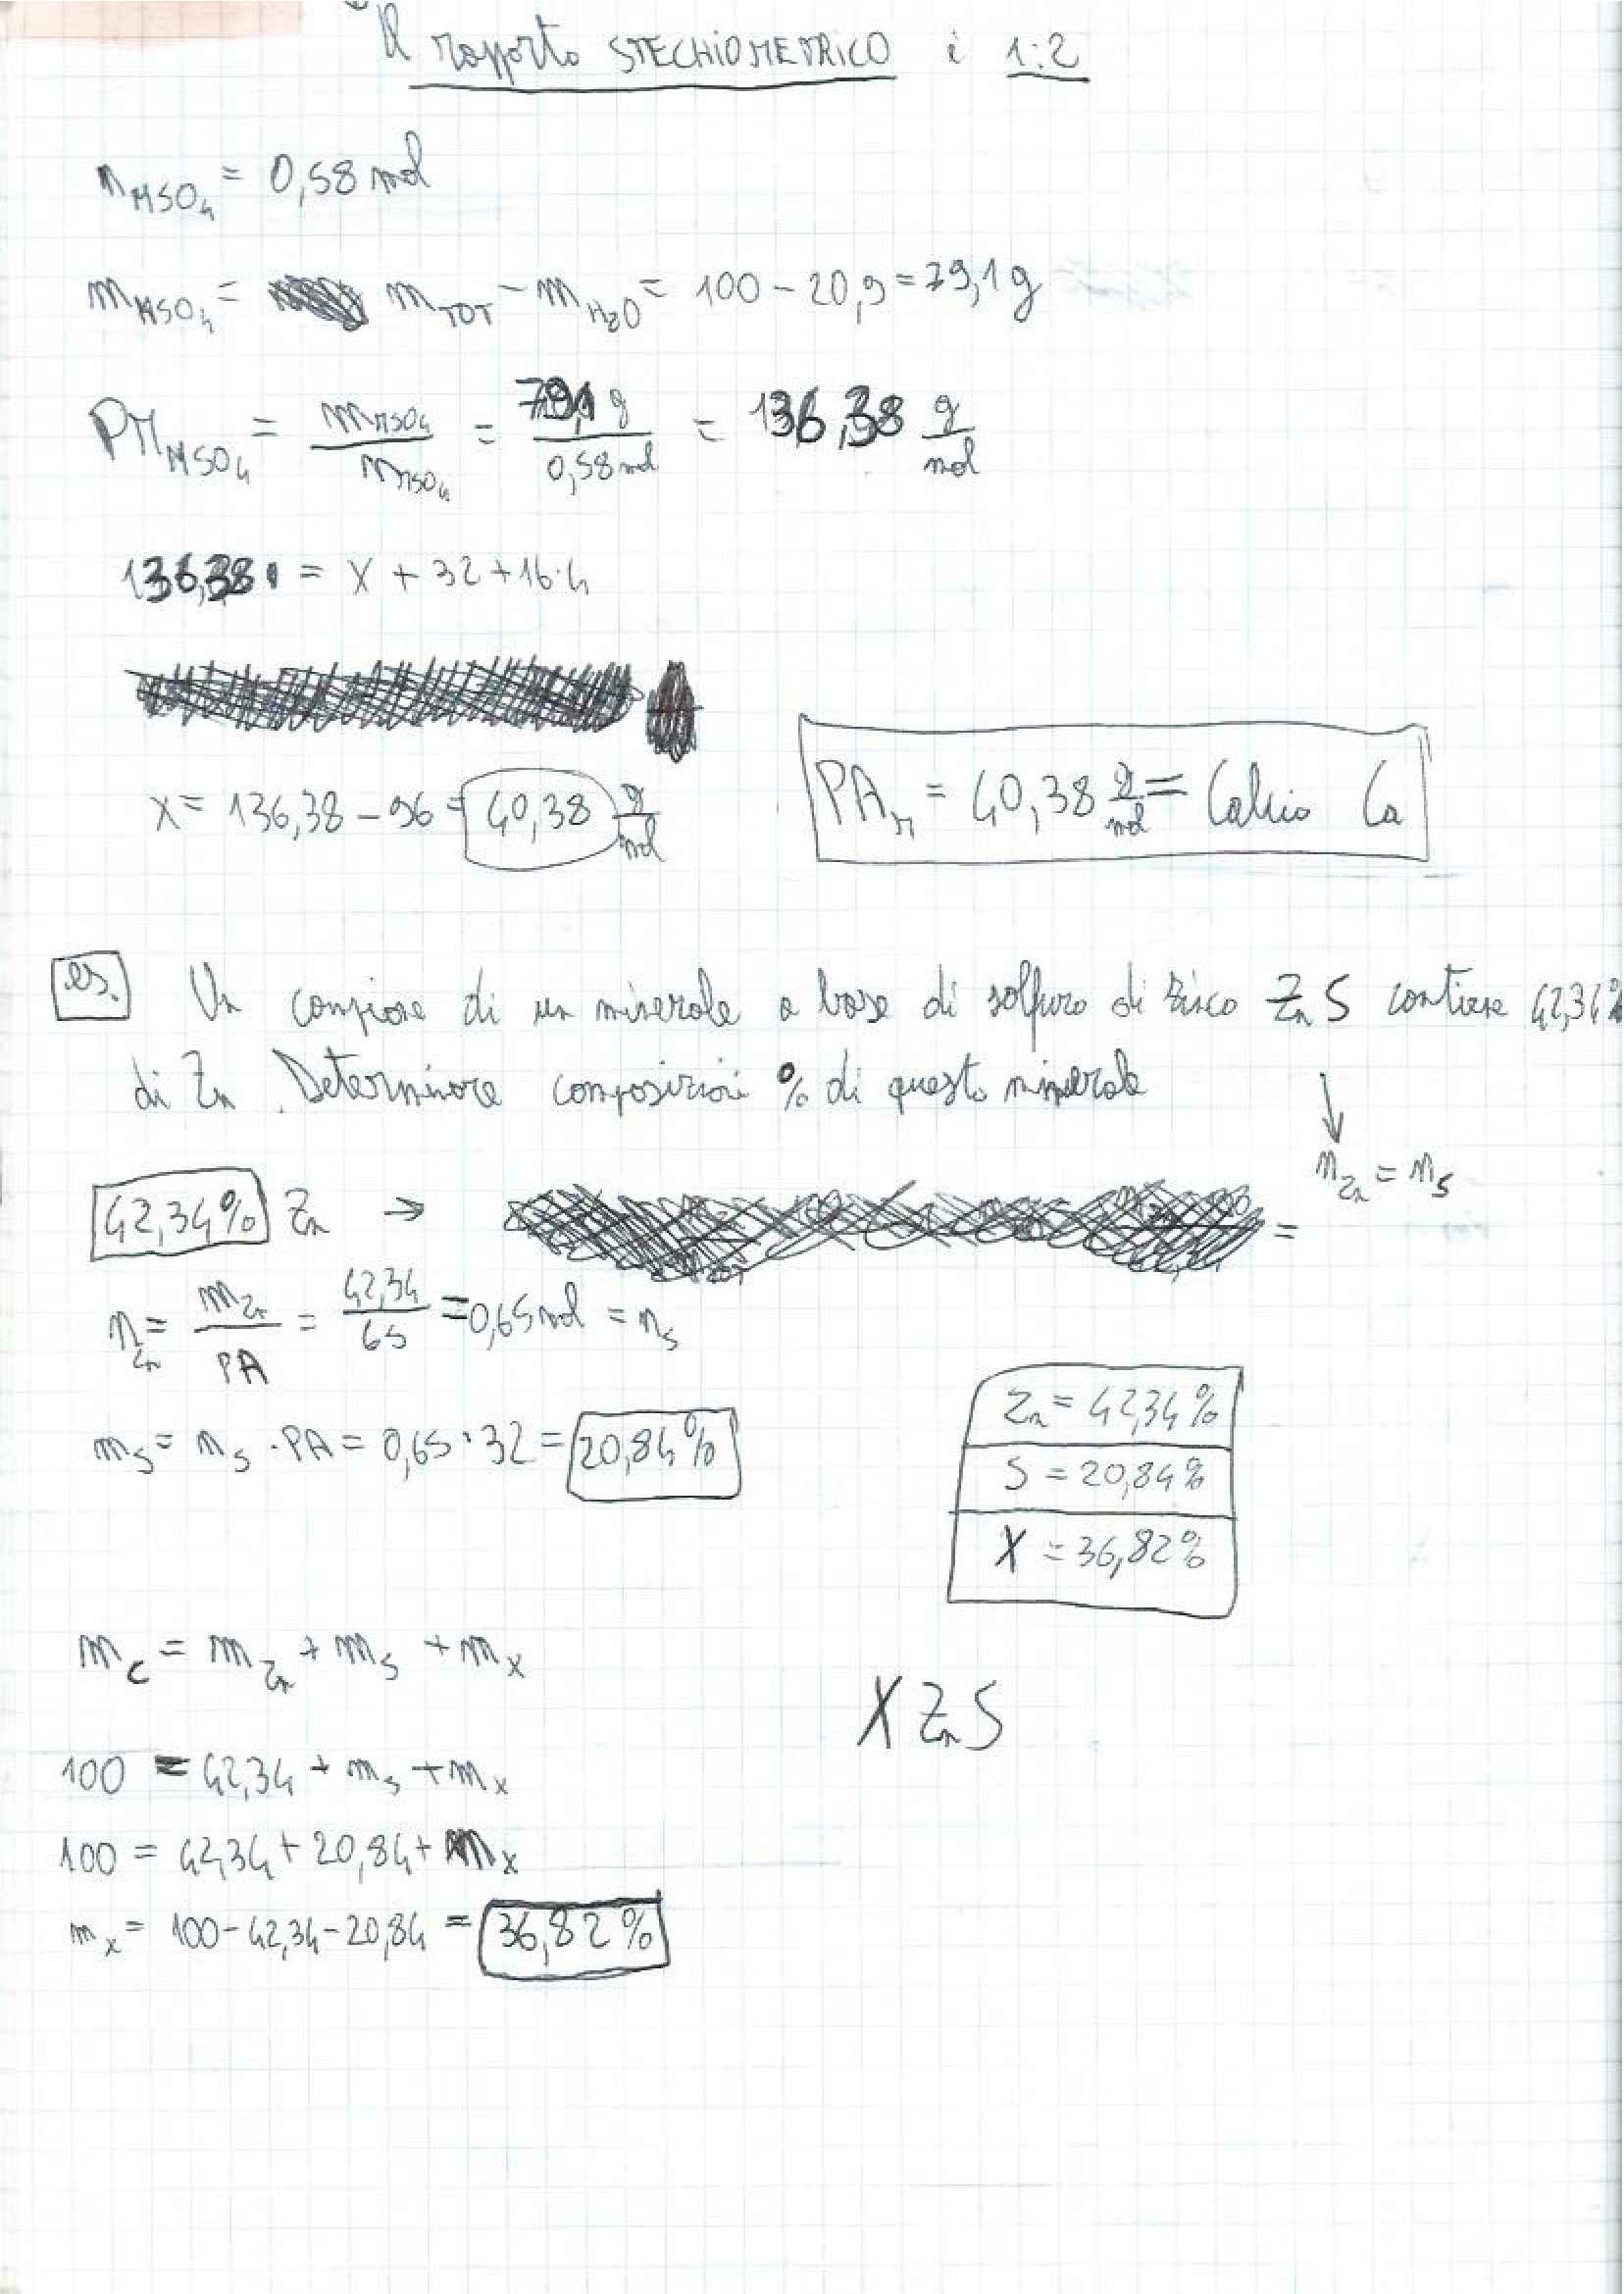 Il rapporto STECHIOMETRICO è 1:2
n MSO4 = 0,58 mol
m MSO4 = m TOT - m H2O = 100 - 20,9 = 79,1 g
PM MSO4 = m MSO4 / n MSO4 = 79,1 g / 0,58 mol = 136,38 g/mol
136,38 = X + 32 + 16·4
X = 136,38 - 96 = 40,38 g/mol
PA M = 40,38 g/mol = Calcio Ca
es. Un campione di un minerale a base di solfuro di zinco ZnS contiene 42,34%
di Zn. Determinare composizioni % di questo minerale
↓
n Zn = n S
42,34% Zn → =
n Zn = m Zn / PA = 42,34 / 65 = 0,65 mol = n S
m S = n S · PA = 0,65 · 32 = 20,84%
Zn = 42,34%
S = 20,84%
X = 36,82%
m C = m Zn + m S + m X
X ZnS
100 = 42,34 + m S + m X
100 = 42,34 + 20,84 + m X
m X = 100 - 42,34 - 20,84 = 36,82%